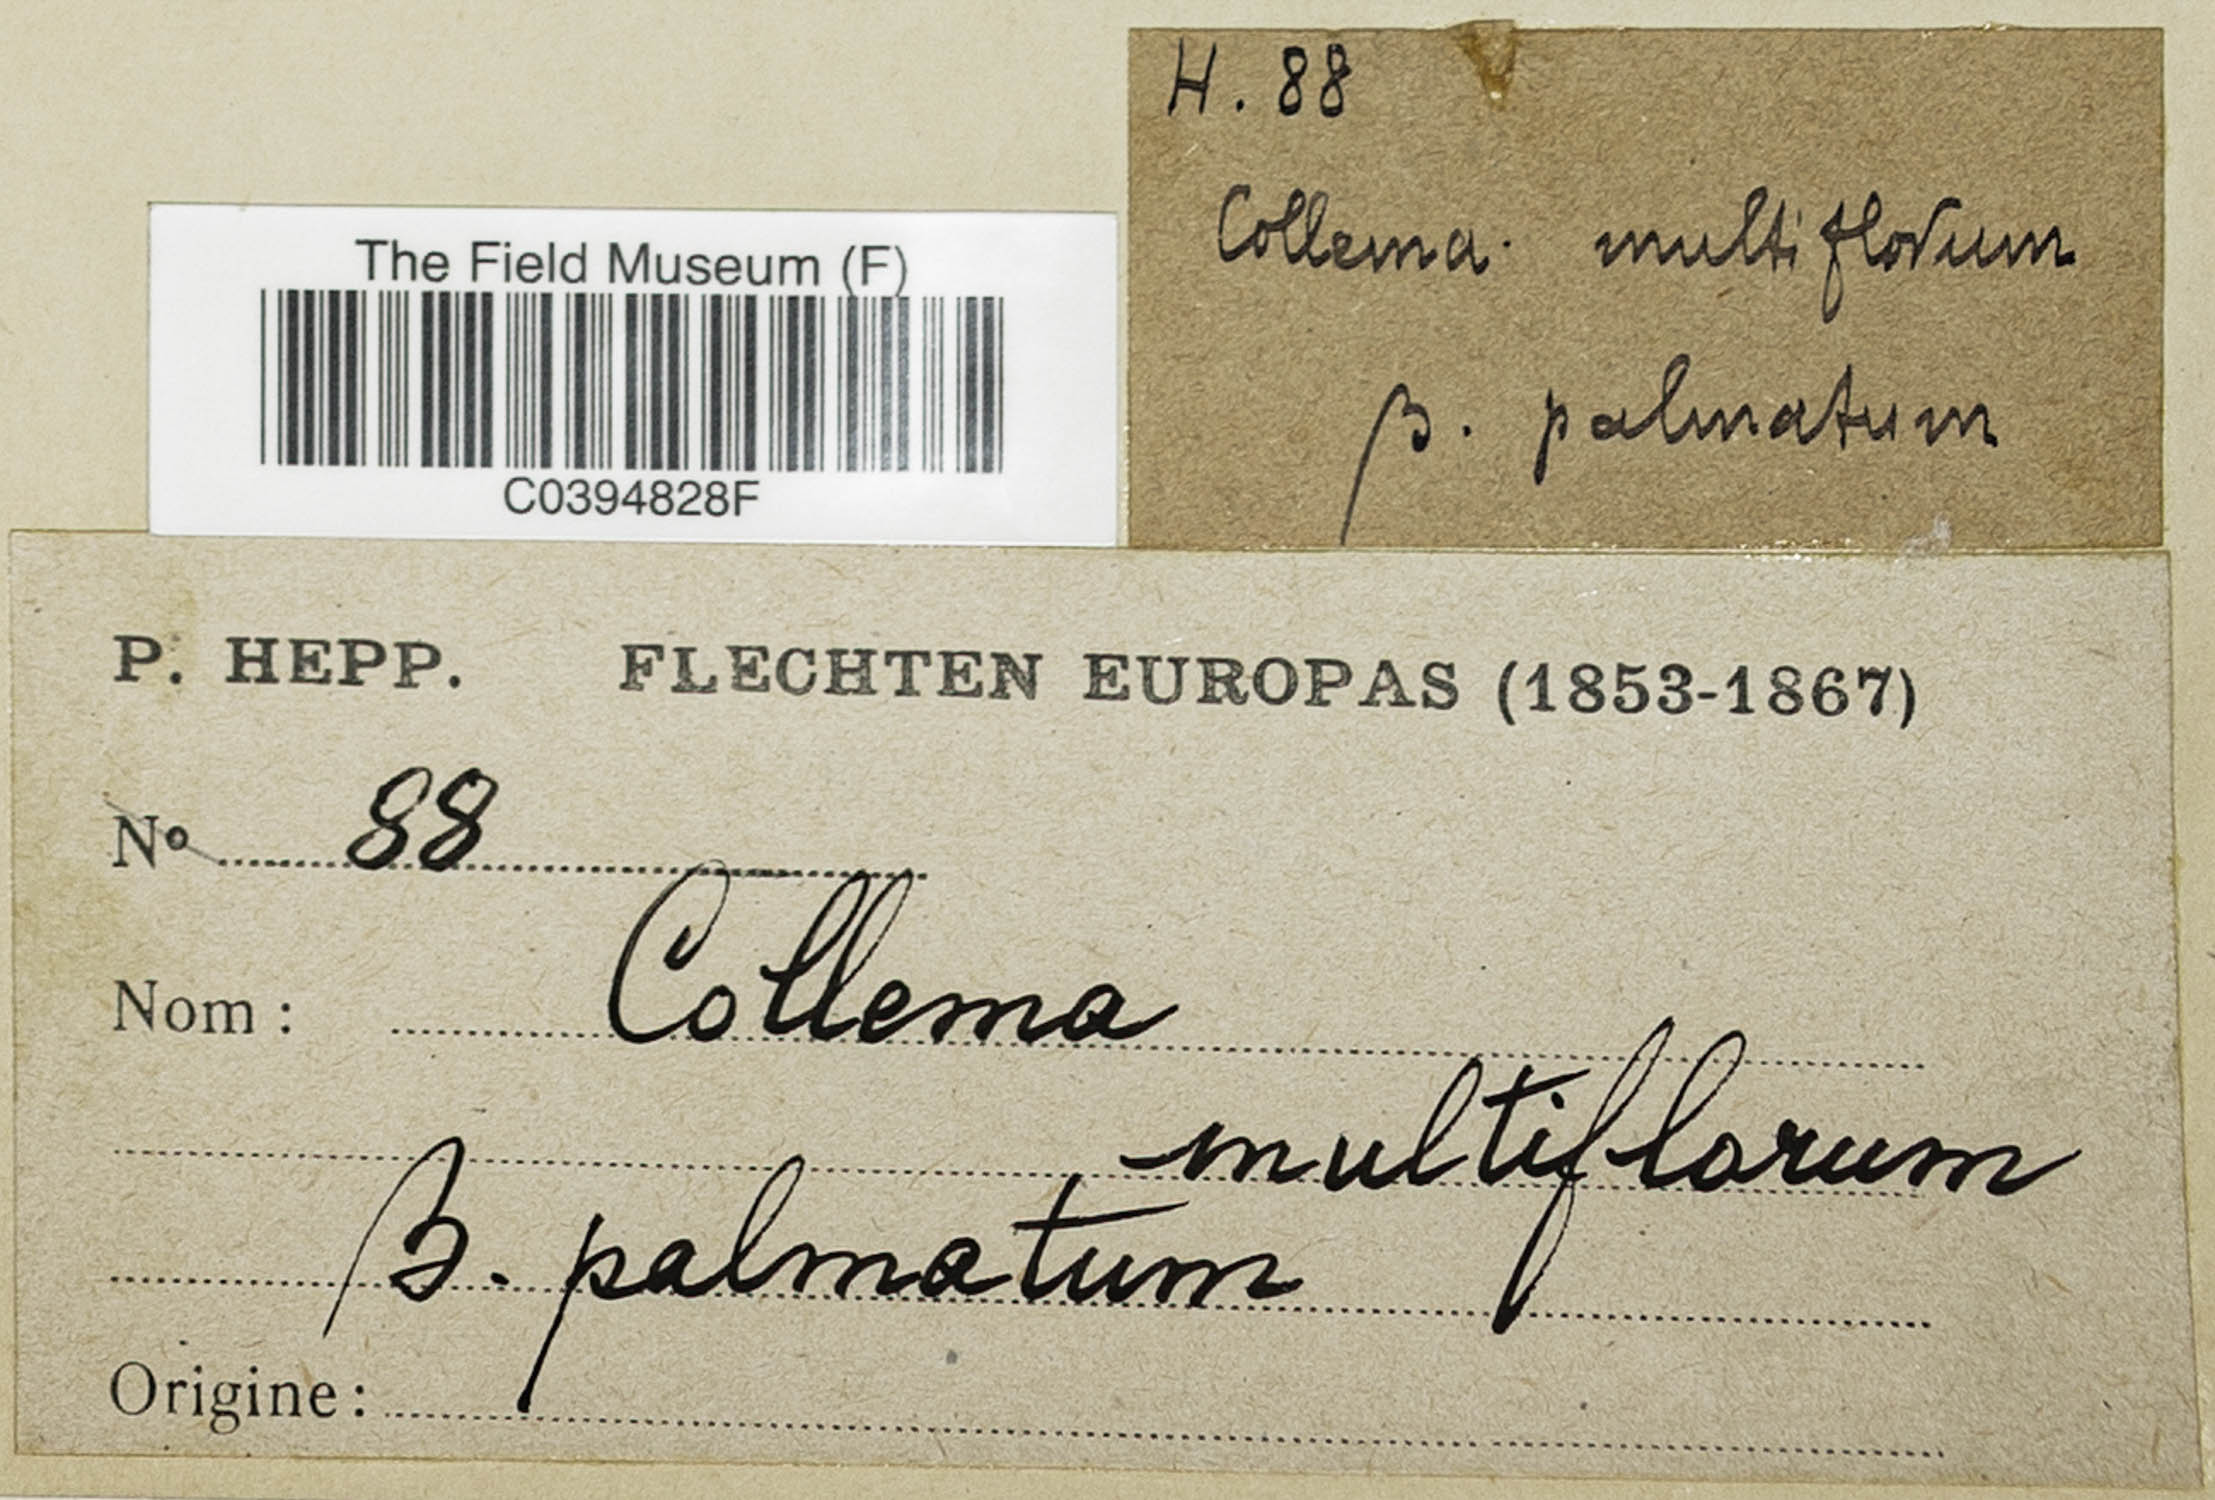 H. 88
Collema multiflorum
β. palmatum
The Field Museum (F)
C0394828F
P. HEPP. FLECHTEN EUROPAS (1853-1867)
Nº 88
Nom: Collema
multiflorum
β. palmatum
Origine: